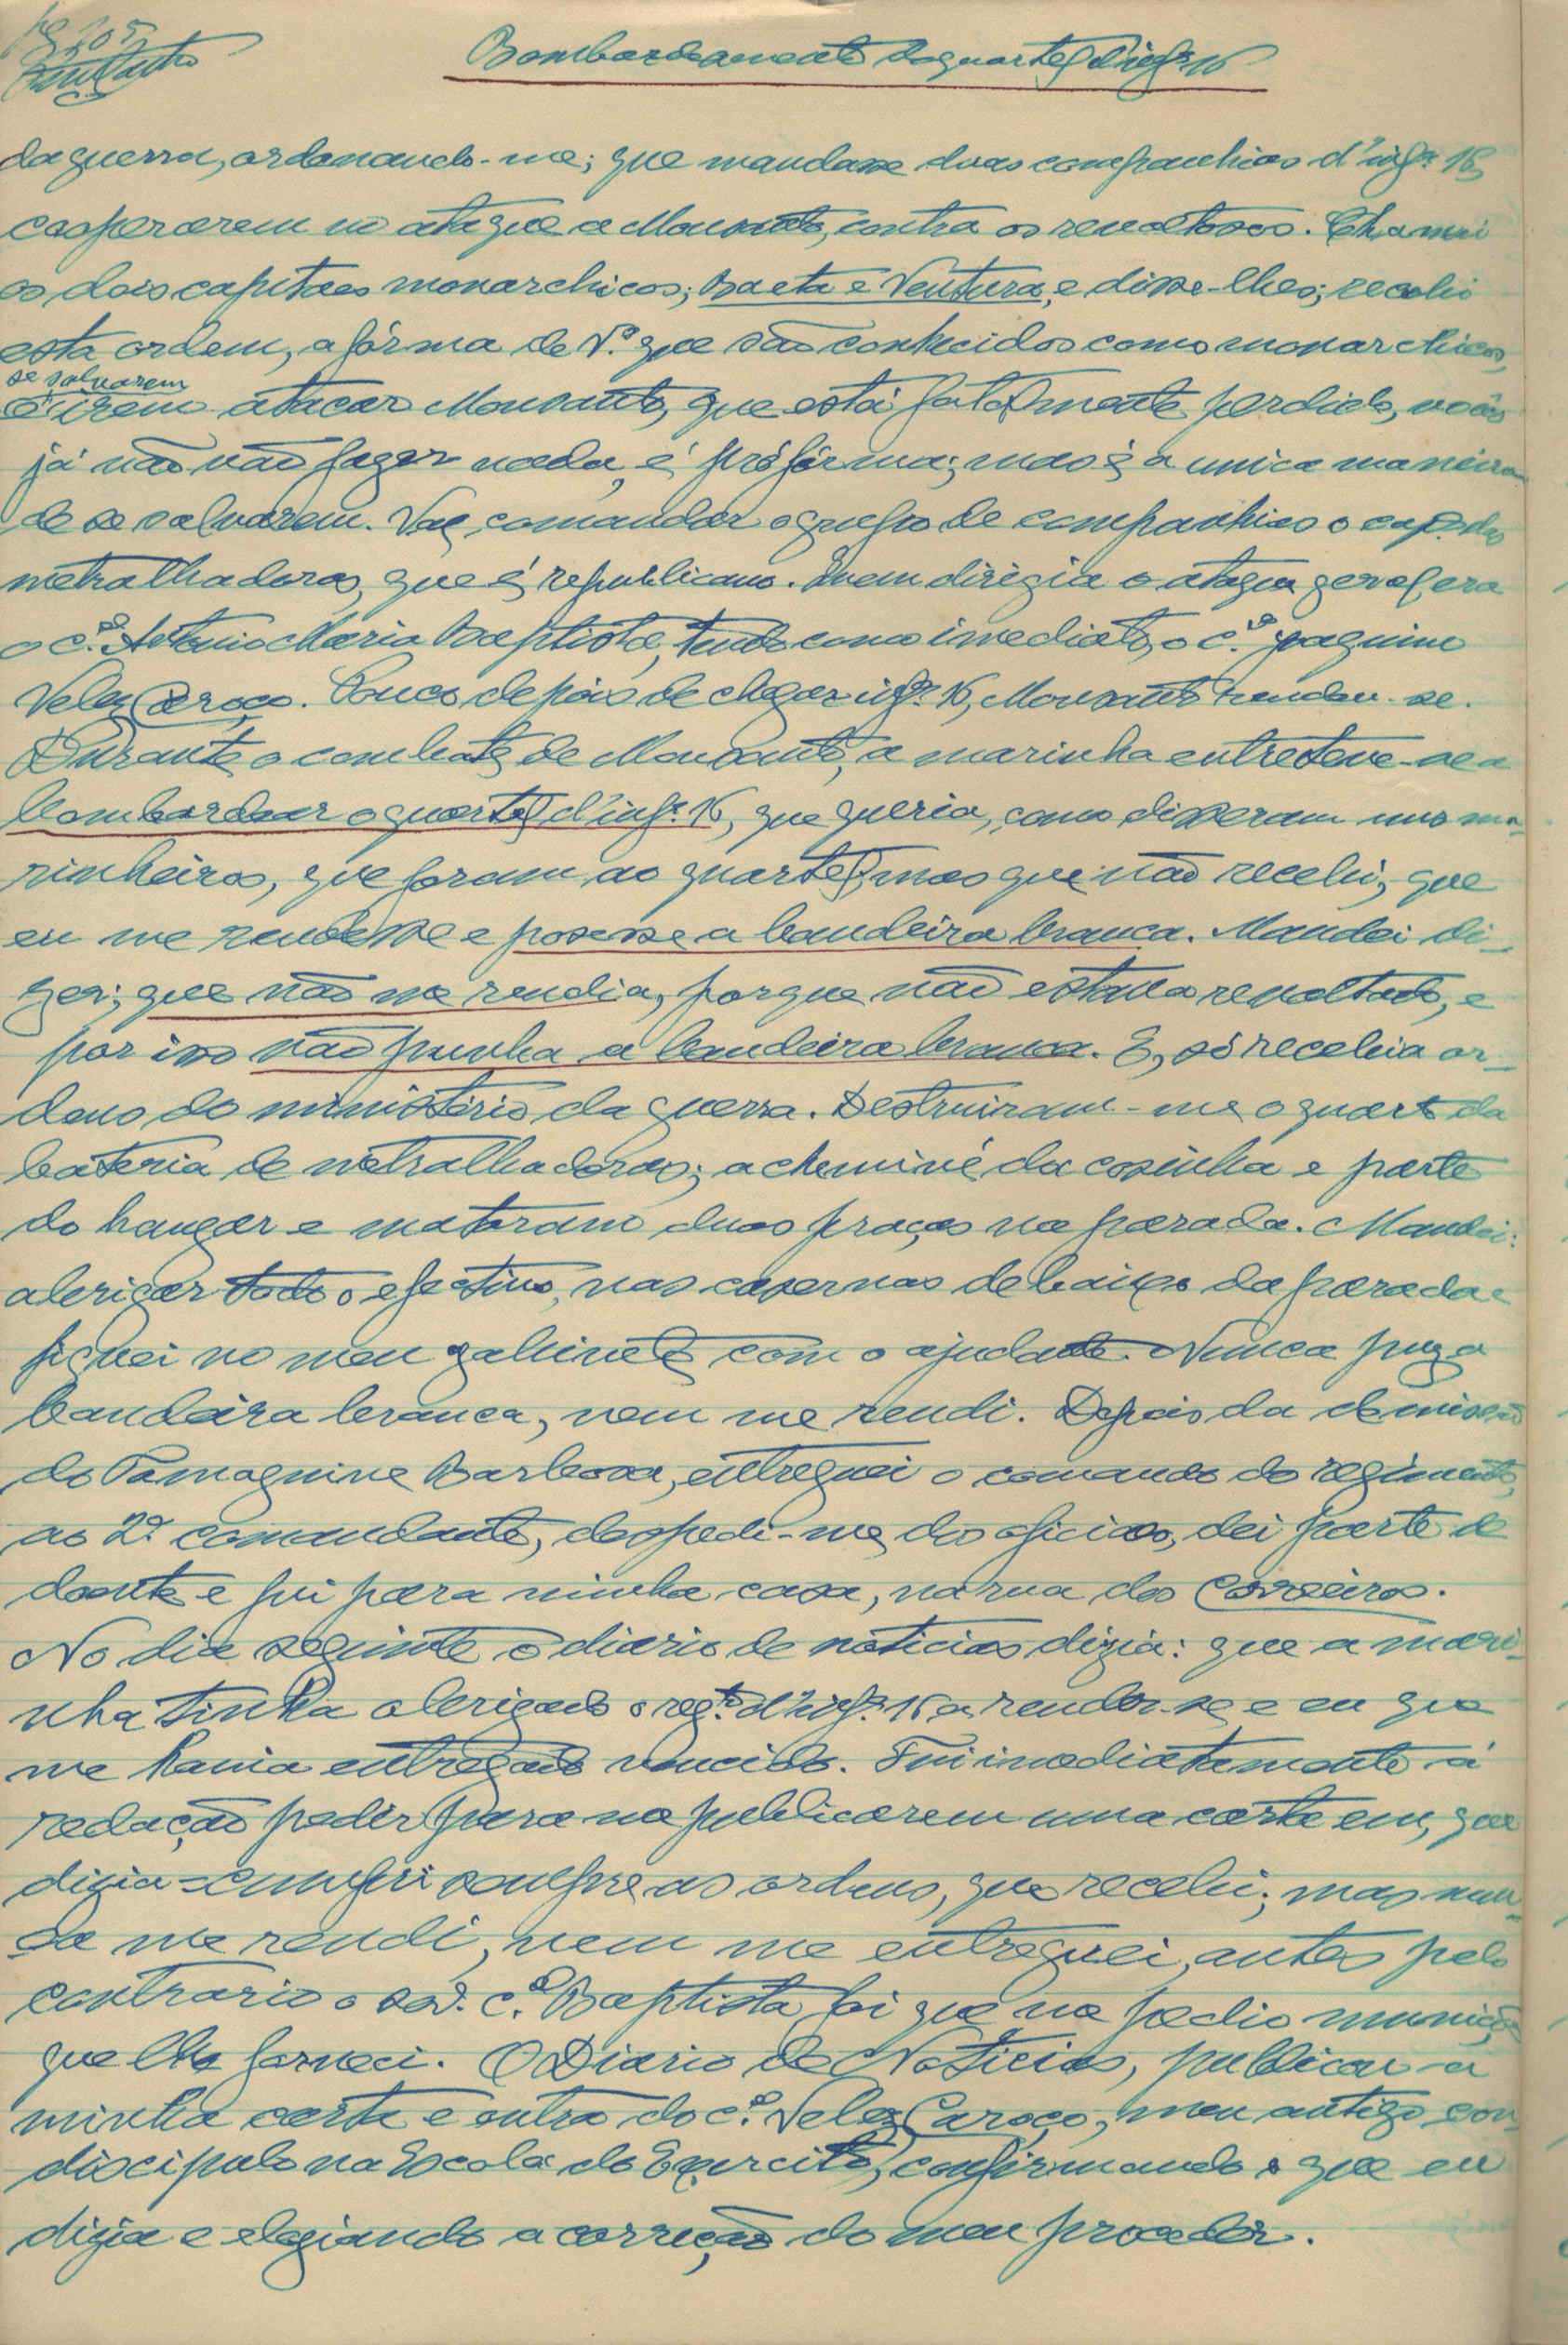 Bombardeamento do quartel d'infª 16
da guerra, ordenando-me; que mandasse duas companhias d'infª 16
cooperarem no ataque a Monsanto, contra os revoltosos. Chamei
os dois capitães monarchicos; Baeta e Ventura, e disse-lhes; recebi
esta ordem, a fórma de V.ª que são conhecidos como monarchicos,
se salvarem
é irem atacar Monsanto, que está fatalmente perdido, vocês
já não vão fazer nada, é pró fórma; mas é a unica maneira
de se salvarem. Vae comandar o grupo de companhias o cap. das
metralhadoras, que é republicano. Quem dirigia o ataque geral era
o c.el Antonio Maria Baptista, tendo como imediato, o c.el Joaquim
Velez Caroço. Pouco depois de chegar infª 16, Monsanto rendeu-se.
Durante o combate de Monsanto, a marinha entreteve-se a
bombardear o quartel d'infª 16, que queria, como disseram uns ma-
rinheiros, que foram ao quartel, mas que não recebi, que
eu me rendesse e posesse a bandeira branca. Mandei di-
zer; que não me rendia, porque não estava revoltado, e
por isso não punha a bandeira branca. E, só recebia or-
dens do ministério da guerra. Destruiram-me o quart. da
bateria de metralhadoras; a cheminé da cosinha e parte
do hangar e mataram duas praças na parada. Mandei:
abrigar todo o efectivo, nas casernas debaixo da parada e
fiquei no meu gabinete com o ajudante. Nunca puz a
bandeira branca, nem me rendi. Depois da demissão
do Tamagnine Barbosa, entreguei o comando do regimento,
ao 2º comandante, despedi-me dos oficiaes, dei parte de
doente e fui para minha casa, na rua dos Correeiros.
No dia seguinte o diario de noticias dizia: que a mari-
nha tinha obrigado o reg.to d'infª 16 a render-se e eu que
me havia entregado vencido. Fui imediatamente á
redação pedir para me publicarem uma carta em, que
dizia = cumpri sempre as ordens, que recebi; mas nun-
ca me rendi, nem me entreguei, antes pelo
contrario o snr. c.el Baptista foi que me pediu munições
que lhe forneci. O Diario de Noticias, publicou a
minha carta e outra do c.el Velez Caroço, meu antigo con-
discipulo na Escola do Exercito, confirmando o que eu
dizia e elogiando a correção do meu proceder.